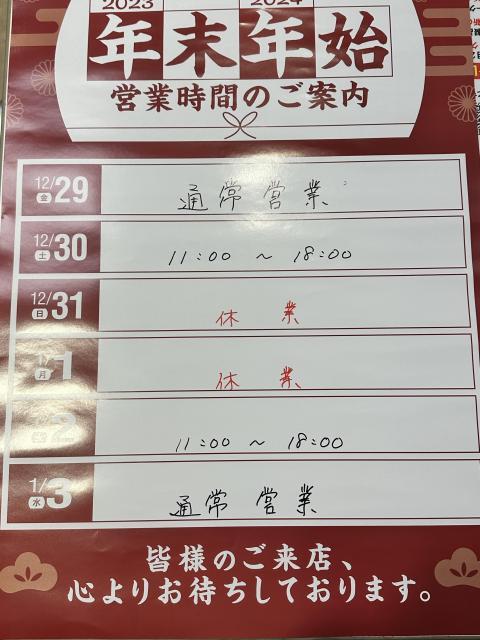 2023 2024
年末年始
営業時間のご案内
12/29 金 通常営業
12/30 土 11:00 ~ 18:00
12/31 日 休業
1/1 月 休業
2 11:00 ~ 18:00
1/3 水 通常営業
皆様のご来店、
心よりお待ちしております。